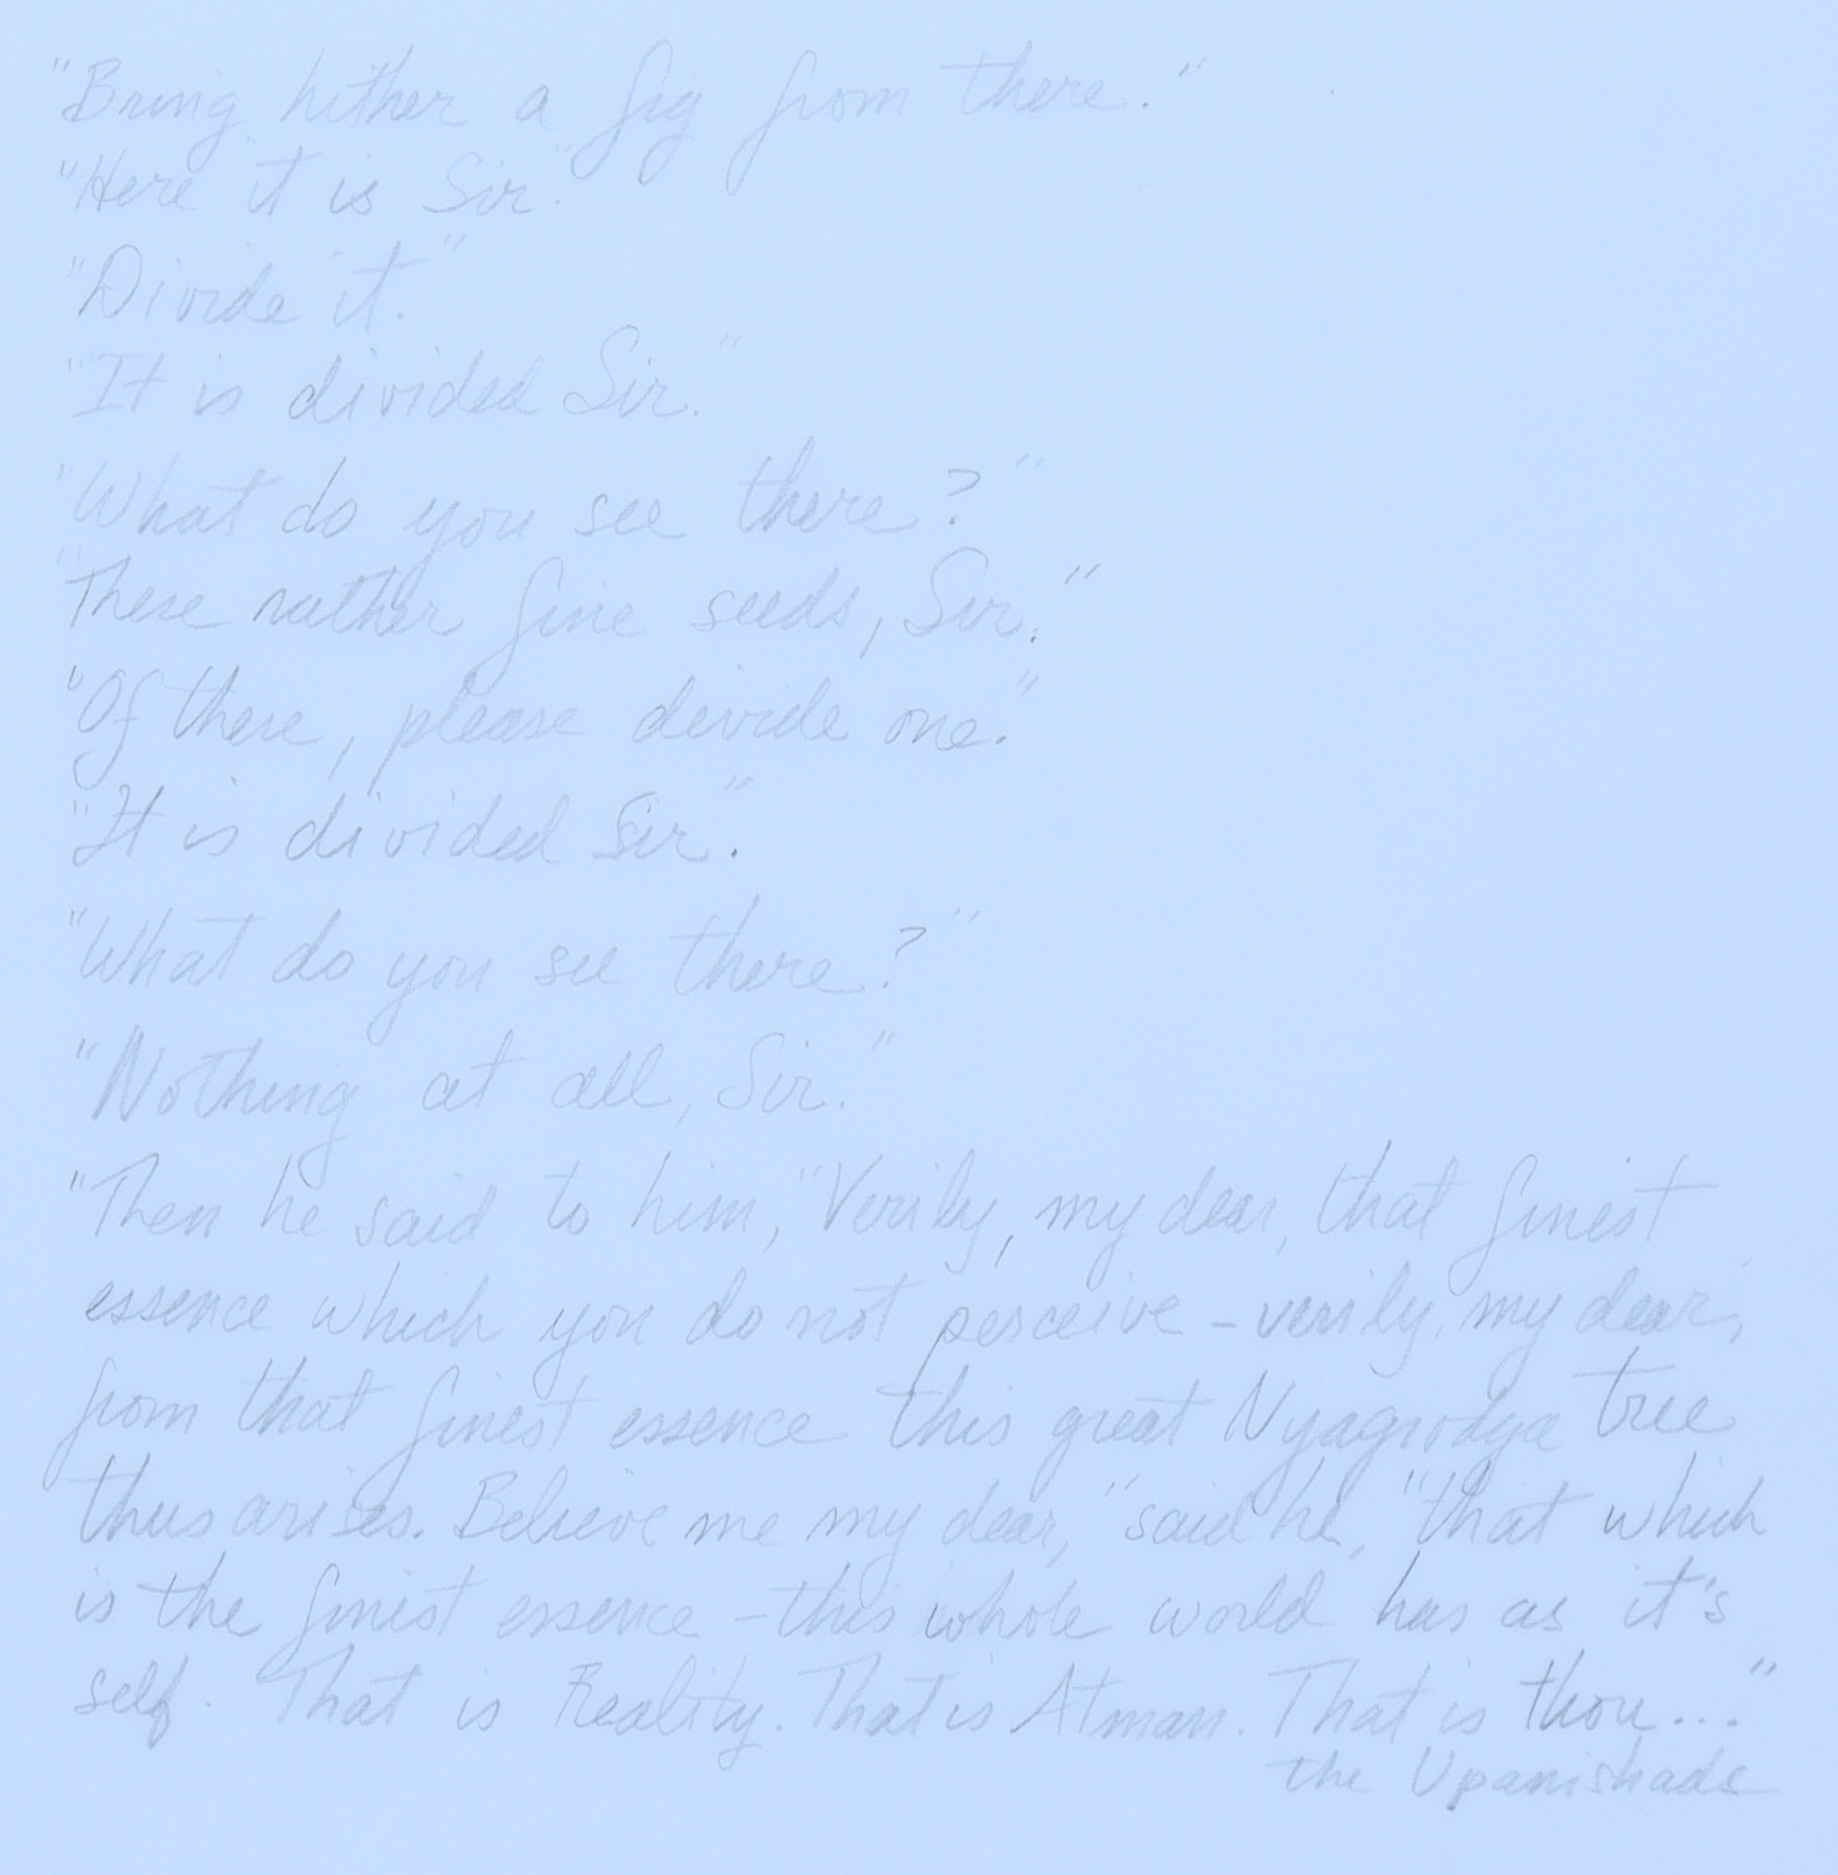 "Bring hither a fig from there."
"Here it is Sir."
"Divide it."
"It is divided Sir."
"What do you see there?"
"These rather fine seeds, Sir."
"Of these, please divide one."
"It is divided Sir".
"What do you see there?"
"Nothing at all, Sir."
"Then he said to him, "Verily, my dear, that finest
essence which you do not perceive - verily, my dear,
from that finest essence this great Nyagrodga tree
thus arises. Believe me my dear," said he, "that which
is the finest essence - this whole world has as it's
self. That is Reality. That is Atman. That is thou..."
the Upanishads